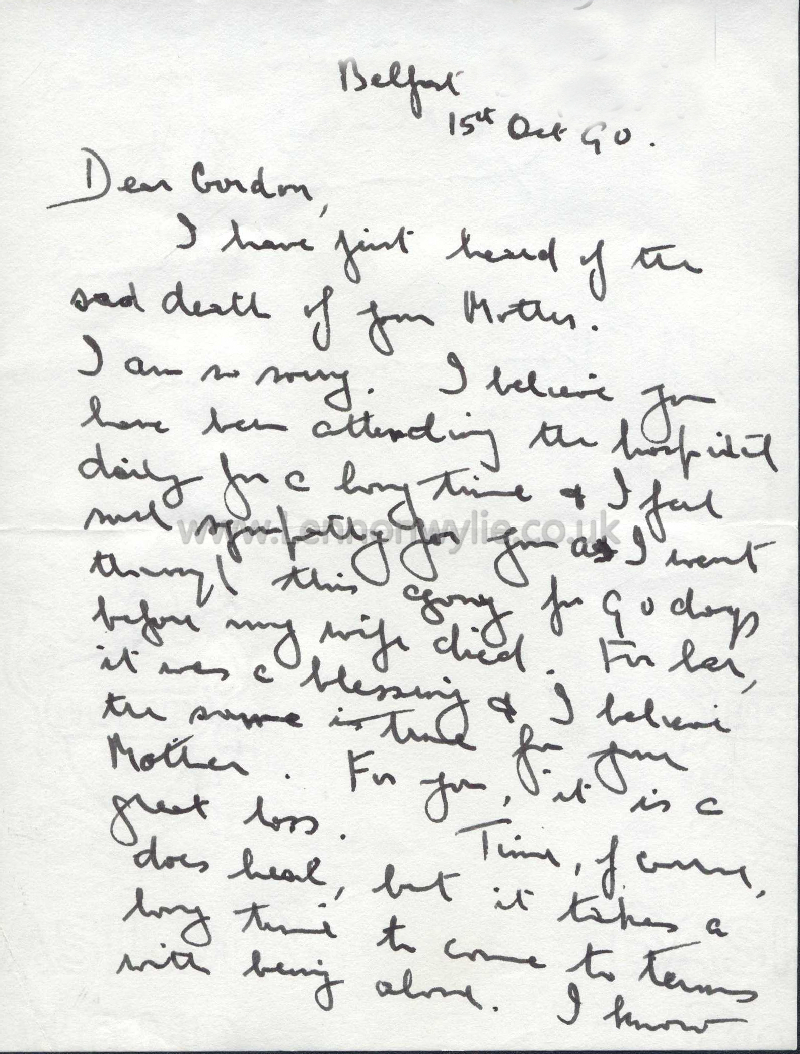 Belfast
15th Oct 90.
Dear Gordon,
I have just heard of the
sad death of your Mother.
I am so sorry. I believe you
have been attending the hospital
daily for a long time & I feel
much sympathy for you as I went
www.Lennonwylie.co.uk
through this agony for 90 days
before my wife died. For her,
it was a blessing & I believe
the same is true for your
Mother. For you, it is a
great loss. Time, of course,
does heal, but it takes a
long time to come to terms
with being alone. I know